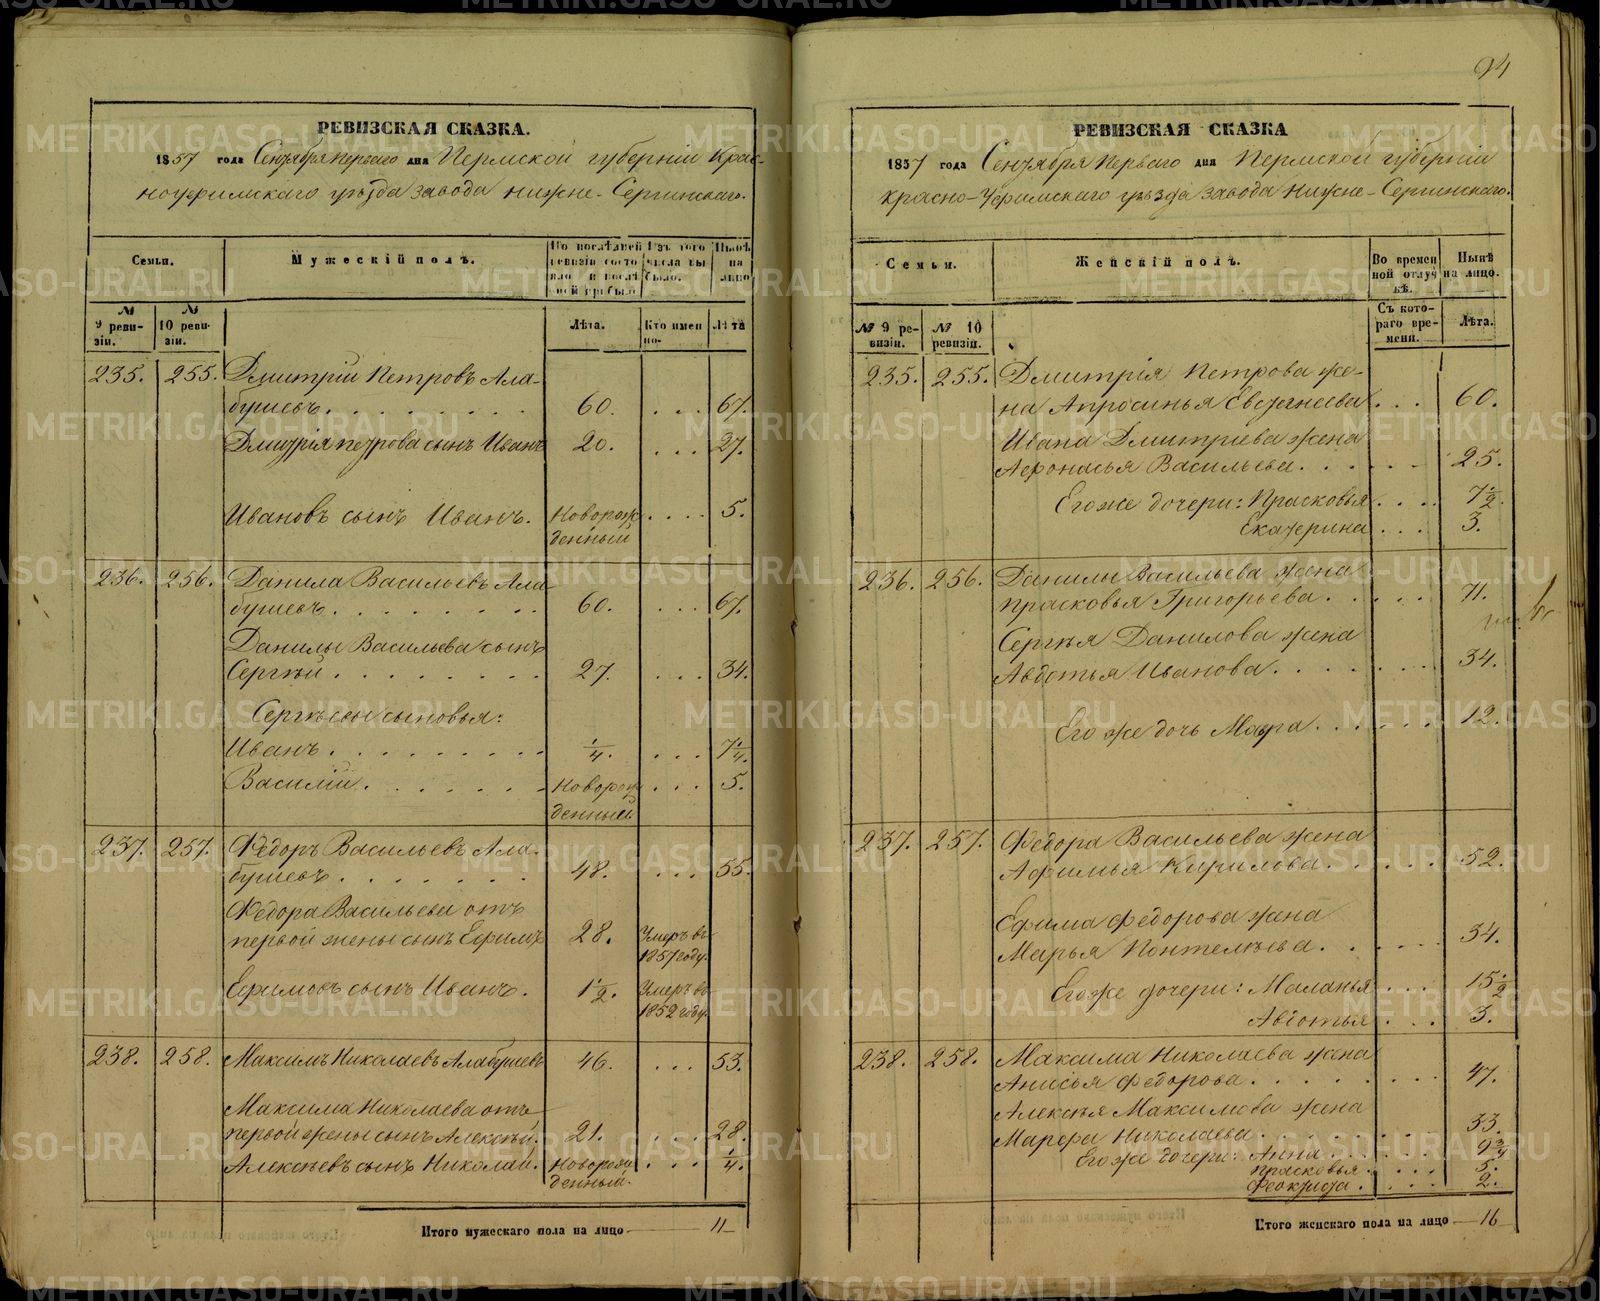 РЕВИЗСКАЯ СКАЗКА.
1857 года Сентября перваго дня Пермской губерніи Крас-
ноуфимскаго уѣзда завода Нижне-Сергинскаго.
Семьи.
Мужескій полъ.
По послѣдней ревизіи состояло и послѣ оной прибыло
Изъ того числа выбыло.
Нынѣ на лицо
№ 9 ревизіи.
№ 10 ревизіи.
Лѣта.
Кто имен но-
Лѣта
235. 255. Дмитрій Петровъ Ала-
бушевъ. 60. 67.
Дмитрія Петрова сынъ Иванъ 20. 27.
Ивановъ сынъ Иванъ. Новорож 5.
денный
236. 256. Данила Васильевъ Ала-
бушевъ. 60. 67.
Данилы Васильева сынъ
Сергѣй. 27. 34.
Сергѣевы сыновья:
Иванъ. 1/4. 7 1/4.
Василій. Новорож 5.
денный
237. 257. Ѳедоръ Васильевъ Ала-
бушевъ. 48. 55.
Ѳедора Васильева отъ
первой жены сынъ Ефимъ 28. Умеръ въ
1857 году.
Ефимовъ сынъ Иванъ. 1 1/2. Умеръ въ
1852 году.
238. 258. Максимъ Николаевъ Алабушевъ 46. 53.
Максима Николаева отъ
первой жены сынъ Алексѣй. 21. 28.
Алексѣевъ сынъ Николай. Новорож 1/4.
денный.
Итого мужескаго пола на лицо 11
94
РЕВИЗСКАЯ СКАЗКА
1857 года Сентября перваго дня Пермской губерніи
Красно-Уфимскаго уѣзда завода Нижне-Сергинскаго.
Семьи.
Женскій полъ.
Во времен ной отлуч кѣ.
Нынѣ на лицо.
№ 9 ревизіи.
№ 10 ревизіи.
Съ кото-раго вре-мени.
Лѣта.
235. 255. Дмитрія Петрова же-
на Апросинья Евстанеева 60.
Ивана Дмитріева жена
Афонасья Васильева. 25.
Его же дочери: Прасковья 7 1/2.
Екатерина 3.
236. 256. Данилы Васильева жена
Прасковья Григорьева. 71.
Сергѣя Данилова жена
Авдотья Иванова. 34.
Его же дочь Мавра. 12.
237. 257. Ѳедора Васильева жена
Афимья Кирилова. 52.
Ефима Федорова жена
Марья Понтелѣева. 34.
Его же дочери: Маланья 15 1/2
Авдотья 3.
238. 258. Максима Николаева жена
Анисья Федорова. 47.
Алексѣя Максимова жена
Марфа Николаева. 33.
Его же дочери: Анна 9 3/4
Прасковья. 5.
Феоктиста. 2.
Итого женскаго пола на лицо 16
METRIKI.GASO-URAL.RU